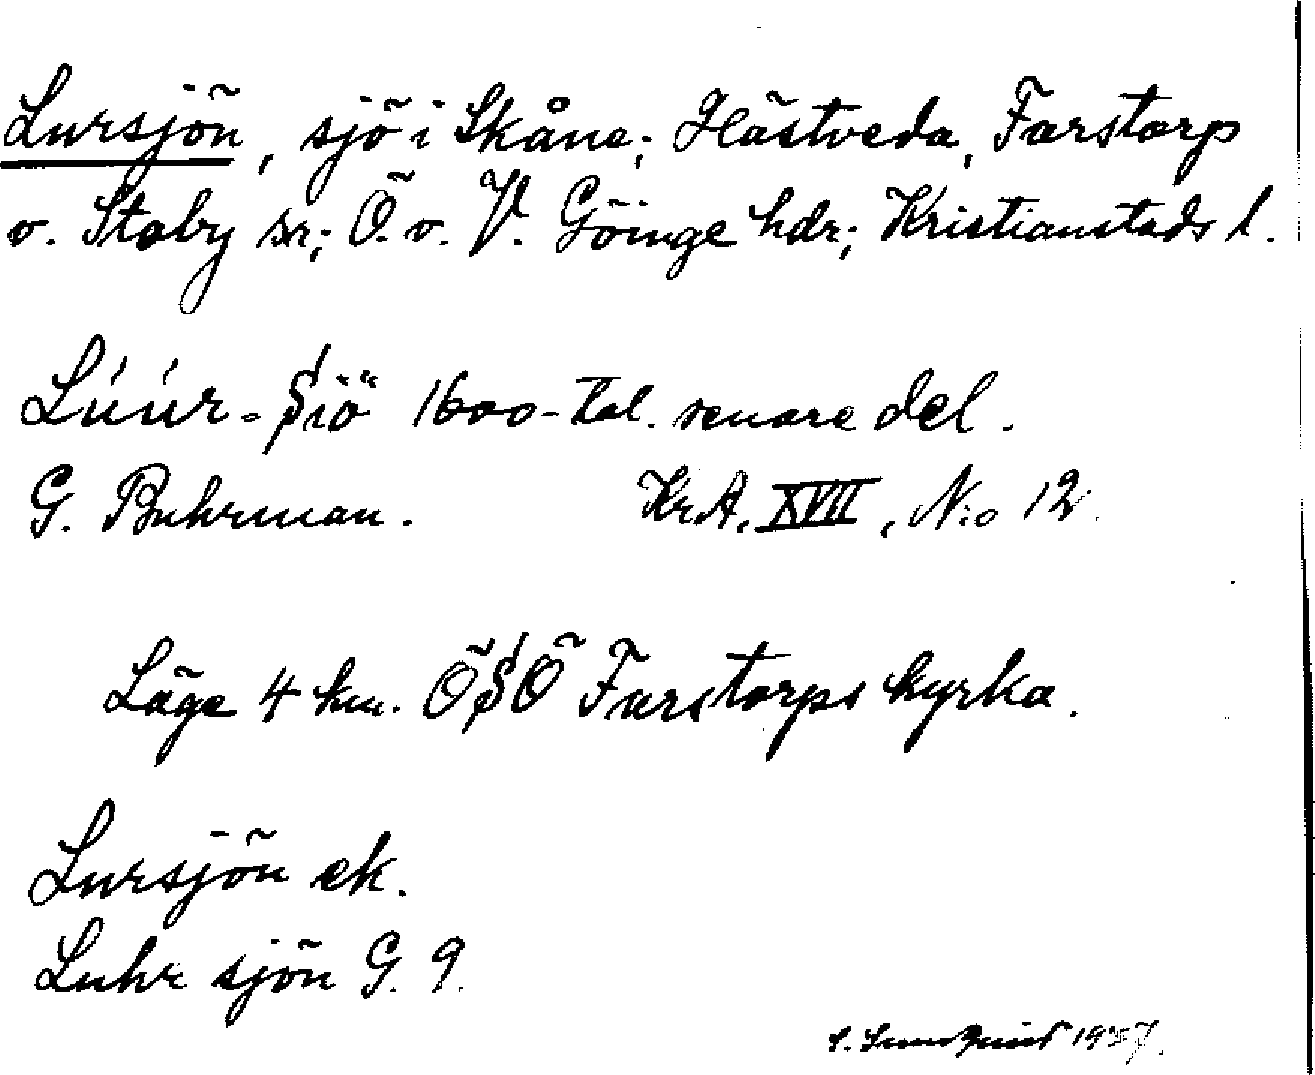 Lursjön, sjö i Skåne; Hästveda, Farstorp
o. Stoby sr; Ö. o. V. Göinge hdr; Kristianstads l.
Lúúr-Siö 1600-tal. senare del.
G. Buhrman. KrA, XVII, N:o 12.
Läge 4 km. ÖSÖ Farstorps kyrka.
Lursjön ek.
Luhr sjön G. 9.